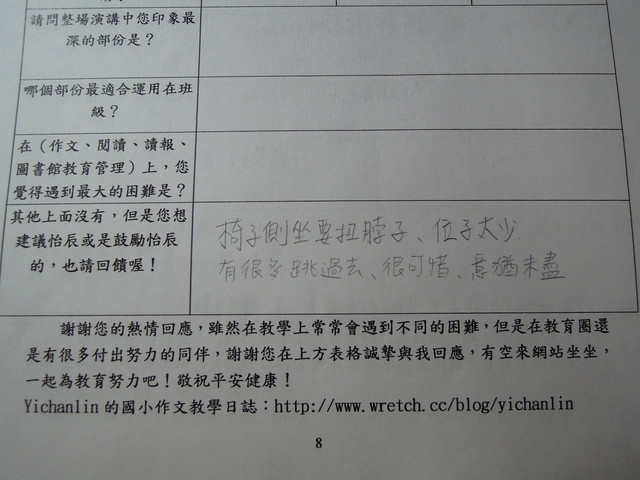 請問整場演講中您印象最
深的部份是？
哪個部份最適合運用在班
級？
在（作文、閱讀、讀報、
圖書館教育管理）上，您
覺得遇到最大的困難是？
其他上面沒有，但是您想
建議怡辰或是鼓勵怡辰
的，也請回饋喔！
椅子側坐要扭脖子、位子太少
有很多跳過去、很可惜、意猶未盡
謝謝您的熱情回應，雖然在教學上常常會遇到不同的困難，但是在教育圈還
是有很多付出努力的同伴，謝謝您在上方表格誠摯與我回應，有空來網站坐坐，
一起為教育努力吧！敬祝平安健康！
Yichanlin 的國小作文教學日誌：http://www.wretch.cc/blog/yichanlin
8